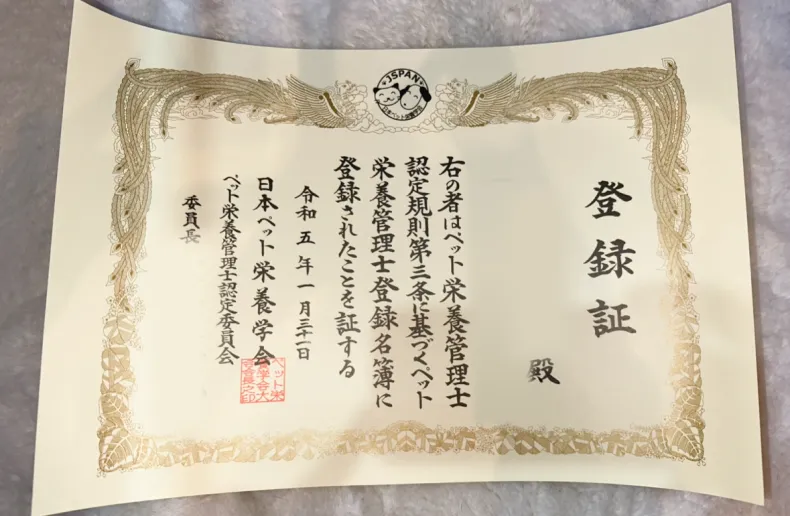 JSPAN
日本ペット栄養学会
登録証
殿
右の者はペット栄養管理士
認定規則第三条に基づくペット
栄養管理士登録名簿に
登録されたことを証する
令和五年一月三十一日
日本ペット栄養学会
ペット栄養管理士認定委員会
委員長